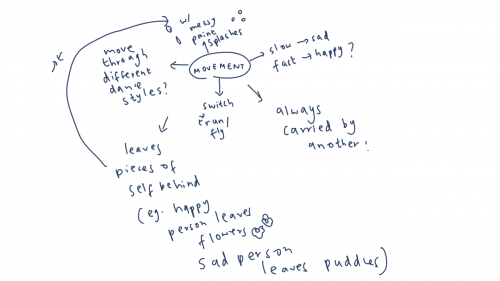 w/
messy
paint
splashes
MOVEMENT
slow → sad
fast → happy ?
move
through
different
dance
styles?
switch
run/
fly
always
carried by
another!
leaves
pieces of
self behind
(eg. happy
person leaves
flowers
sad person
leaves puddles)